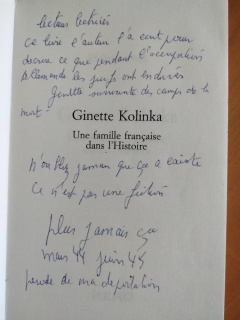 lecteurs lectrices
Ce livre l'auteur l'a écrit pour
décrire ce que pendant l'occupation
allemande les juifs ont enduré
Ginette survivante des camps de la
mort
Ginette Kolinka
Une famille française
dans l'Histoire
N'oubliez jamais que ça a existé
Ce n'est pas une fiction
plus jamais ça
mars 44 juin 45
période de ma déportation